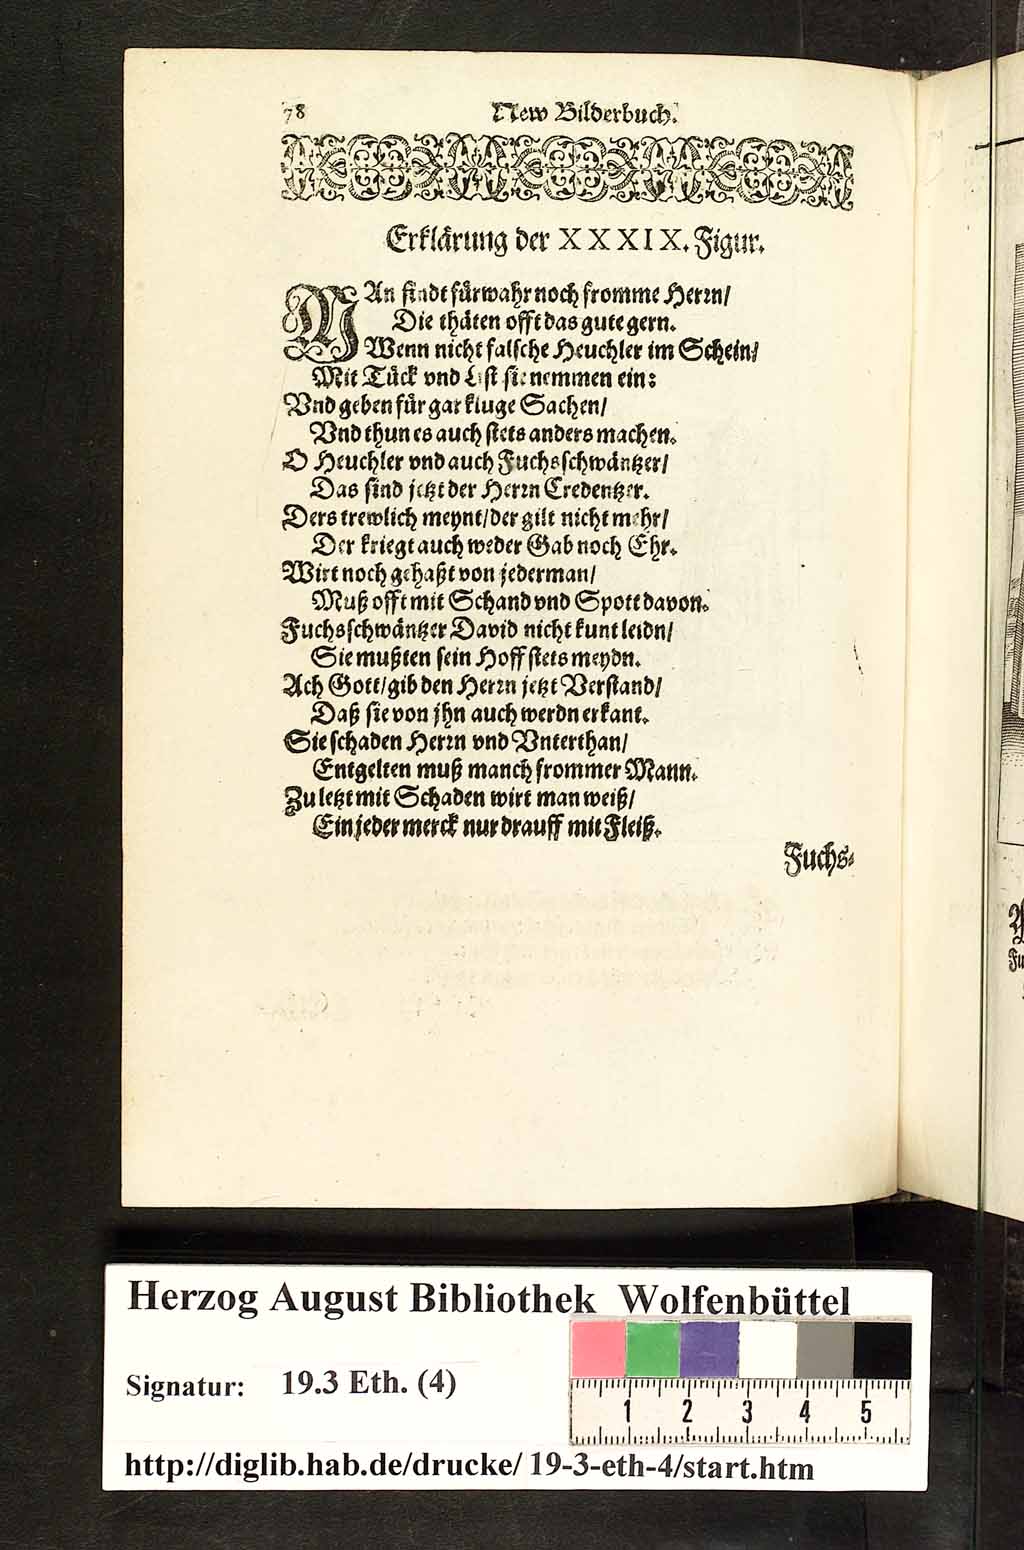 78 New Bilderbuch.
Erklärung der XXXIX. Figur.
MAn findt fürwahr noch fromme Herrn/
Die thäten offt das gute gern.
Wenn nicht falsche Heuchler im Schein/
Mit Tück vnd List sie nemmen ein:
Vnd geben für gar kluge Sachen/
Vnd thun es auch stets anders machen.
O Heuchler vnd auch Fuchsschwäntzer/
Das sind jetzt der Herrn Credentzer.
Ders trewlich meynt/ der gilt nicht mehr/
Der kriegt auch weder Gab noch Ehr.
Wirt noch gehaßt von jederman/
Muß offt mit Schand vnd Spott davon.
Fuchsschwäntzer David nicht kunt leidn/
Sie mußten sein Hoff stets meydn.
Ach Gott/ gib den Herrn jetzt Verstand/
Daß sie von jhn auch werdn erkant.
Sie schaden Herrn vnd Vnterthan/
Entgelten muß manch frommer Mann.
Zu letzt mit Schaden wirt man weiß/
Ein jeder merck nur drauff mit Fleiß.
Fuchs-
Herzog August Bibliothek Wolfenbüttel
Signatur: 19.3 Eth. (4)
1 2 3 4 5
http://diglib.hab.de/drucke/ 19-3-eth-4/start.htm